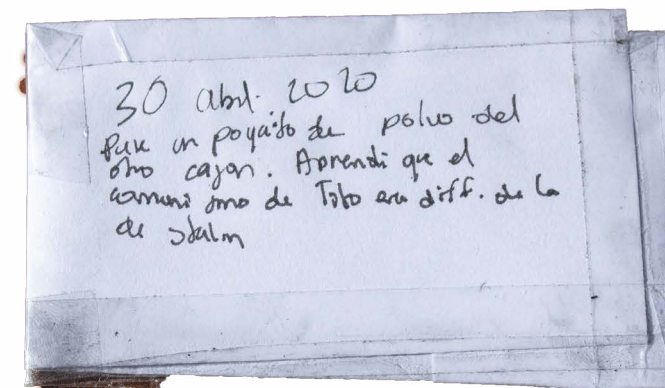 30 abril. 2020
Puse un poquito de polvo del
otro cajon. Aprendi que el
comunismo de Tito era diff. de la
de Stalin